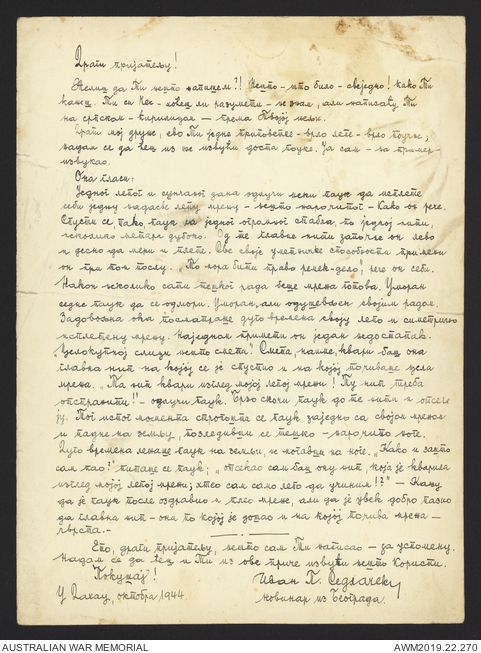 Драги пријатељу!
Желиш да Ти нешто напишем?! Нешто - што било - свеједно! како Ти
кажеш. Ти си Чех - ли разумети - не знам, али написаћу Ти
на српском - кирилицом - према Твојој жељи.
Драги мој друже, ево Ти једне приповетке - врло лепе - врло поучне,
надам се да ћеш из ње извући доста поуке. Ја сам - на пример -
извукао.
Она гласи:
Једног лепог и сунчаног дана одлучи неки паук да исплете
себи једну надасве лепу мрежу - нешто нарочитог - како он рече.
Спусти се, тако, паук са једног огромног стабла по једној нити,
неколико метара дубоко. Од те главне нити започне он лево
и десно да мери и плете. Све своје уметничке способности примени
он при том послу. „То мора бити право ремек-дело", рече он себи.
Након неколико сати тешког рада беше мрежа готова. Уморан
седне паук да се одмори. Уморан, али одушевљен својим радом.
Задовољна ока посматраше дуго времена своју лепо и симетрично
исплетену мрежу. Наједном примети он један недостатак.
„Целокупној слици нешто смета". Смета, наиме, квари баш она
главна нит на којој се је спустио и на којој почиваше цела
мрежа. „Та нит квари изглед мојој лепој мрежи! Ту нит треба
отстранити!!" - одлучи паук. Брзо скочи паук до те нити и отсече
ју. Тог истог момента стропошта се паук заједно са својом мрежом
и падне на земљу, повредивши се тешко - нарочито ноге.
Дуго времена лежаше паук на земљи, не могавши на ноге. „Како и зашто
сам пао?" питаше се паук; „отсекао сам баш ону нит, која је кварила
изглед мојој лепој мрежи; хтео сам само лепо да учиним!?" - Кажу
да је паук после оздравио и плео мреже, али да је увек добро пазио
да главна нит - она по којој је дошао и на којој почива мрежа -
чврста. -
Ето, драги пријатељу, нешто сам Ти написао - за успомену.
Надам се да ћеш и Ти из ове приче извући нешто користи.
Покушај!
Иван П. Седлачек
У Дахау, октобра 1944.
новинар из Београда.
AUSTRALIAN WAR MEMORIAL
AWM2019.22.270